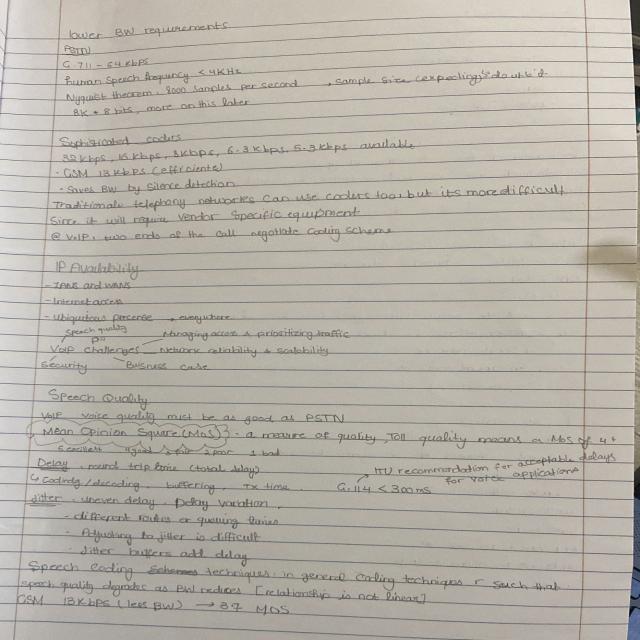 lower BW requirements
PSTN
G.711 - 64 Kbps
human Speech frequency < 4KHz
Nyquist theorem, 8000 samples per second → sample size (expecting) 8 double'd
8K * 8 bits, more on this later
Sophisticated coders
32 Kbps, 16 Kbps, 8Kbps, 6.3 Kbps, 5.3 Kbps available
- GSM 13 Kbps (efficiente)
- Saves BW by silence detection
Traditional telephony networks can use coders too, but its more difficult
Since it will require vendor specific equipment
@ VoIP, two ends of the call negotiate coding scheme
IP Availability
- LANS and WANS
- Internet access
- ubiquitous presense → everywhere
speech quality Managing access & prioritizing traffic
VoIP challenges Network reliability & scalability
Security Business case
Speech Quality
VoIP voice quality must be as good as PSTN
Mean Opinion Square (MOS) : a measure of quality, Toll quality means a MOS of 4+
5 excellent 4 good 3 fair 2 poor 1 bad
Delay. round trip time (total delay) ITU recommendation for acceptable delays
↳ Coding/decoding, buffering, Tx time G.114 < 300ms for voice applications
Jitter. uneven delay. Delay variation.
- different routes or queuing times
- Adjusting to jitter is difficult
- Jitter buffers add delay
Speech Coding Schemes techniques: in general coding techniques r such that
speech quality degrades as BW reduces [relationship is not linear]
GSM 13Kbps (less BW) → 3.7 MOS